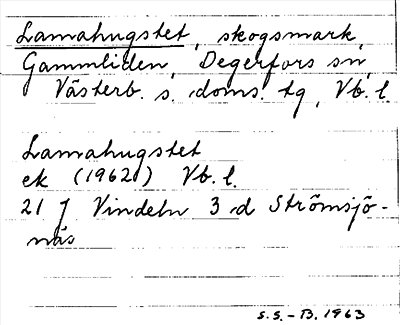 Lamahugstet, skogsmark,
Gammliden, Degerfors sn,
Västerb. s. doms. tg, Vb. l.
Lamahugstet
ek (1962) Vb. l.
21 J Vindeln 3 d Strömsjö-
näs
S.S. - B. 1963